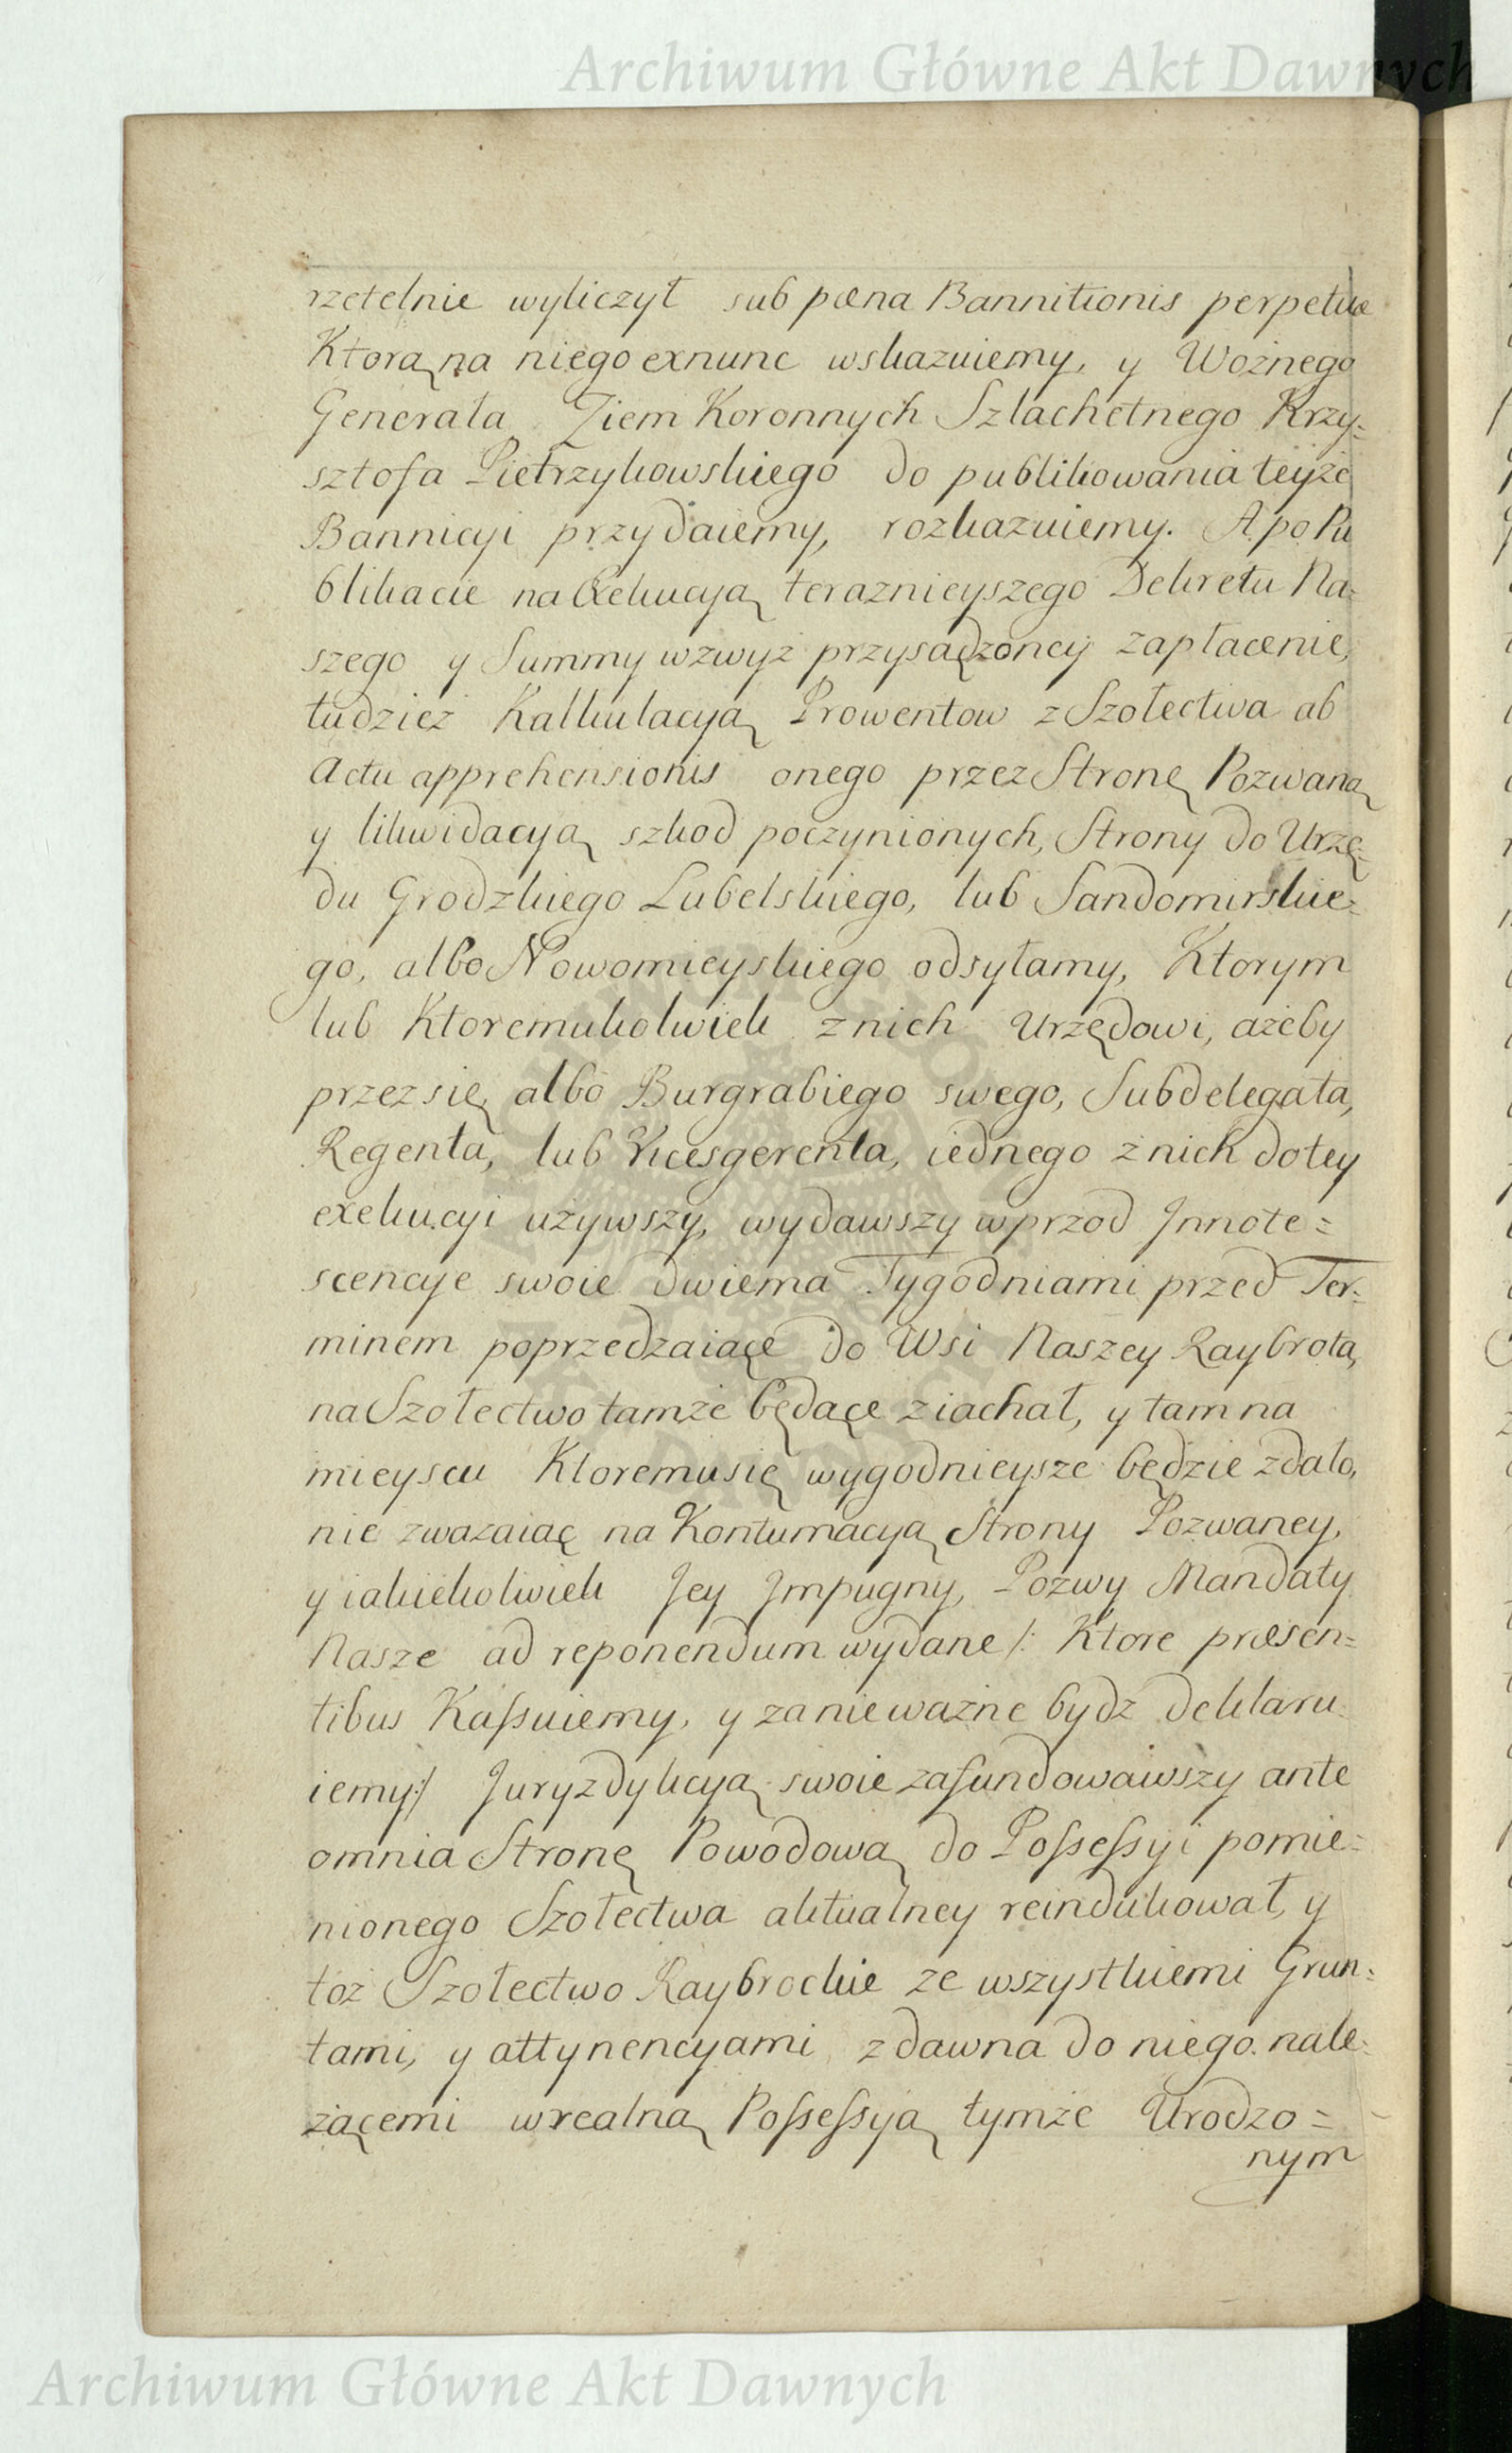 Archiwum Główne Akt Dawnych
rzetelnie wyliczył sub pœna Bannitionis perpetuæ
Ktorą na niego exnunc wskazuiemy, y Woznego
Generała Ziem Koronnych Szlachetnego Krzy=
sztofa Pietrzykowskiego do publikowania teyże
Bannicyi przydaiemy, rozkazuiemy. A po Pu
blikacie na Exekucyą teraznieyszego Dekretu Na=
szego y Summy wzwyż przysądzoney zapłacenie,
tudziez Kalkulacyą Prowentow z Szołectwa ab
Actu apprehensionis onego przez Stronę Pozwaną
y likwidacyą szkod poczynionych, Strony do Urzę=
du Grodzkiego Lubelskiego, lub Sandomirskie=
go, albo Nowomieyskiego odsyłamy, Ktorym
lub Ktoremukolwiek z nich Urzędowi, ażeby
przez się albo Burgrabiego swego, Subdelegata,
Regenta, lub Vicesgerenta, iednego z nich do tey
exekucyi używszy, wydawszy wprzod Innote=
scencye swoie dwiema Tygodniami przed Ter=
minem poprzedzaiące do Wsi Naszey Raybrota,
na Szołectwo tamże będące ziachał, y tam na
mieyscu Ktoremu się wygodnieysze będzie zdało,
nie zwazaiąc na Kontumacyą Strony Pozwaney,
y iakiekolwiek Jey Impugny, Pozwy Mandaty
Nasze ad reponendum wydane /: Ktore præsen=
tibus Kaſsuiemy, y za nieważne bydź deklaru=
iemy :/ Juryzdykcyą swoie zafundowawszy ante
omnia Stronę Powodową do Poſseſsyi pomie=
nionego Szołectwa aktualney reindukował, y
toż Szołectwo Raybrockie ze wszystkiemi Grun=
tami, y attynencyami z dawna do niego nale=
żącemi w realną Poſseſsyą tymże Urodzo=
nym
Archiwum Główne Akt Dawnych